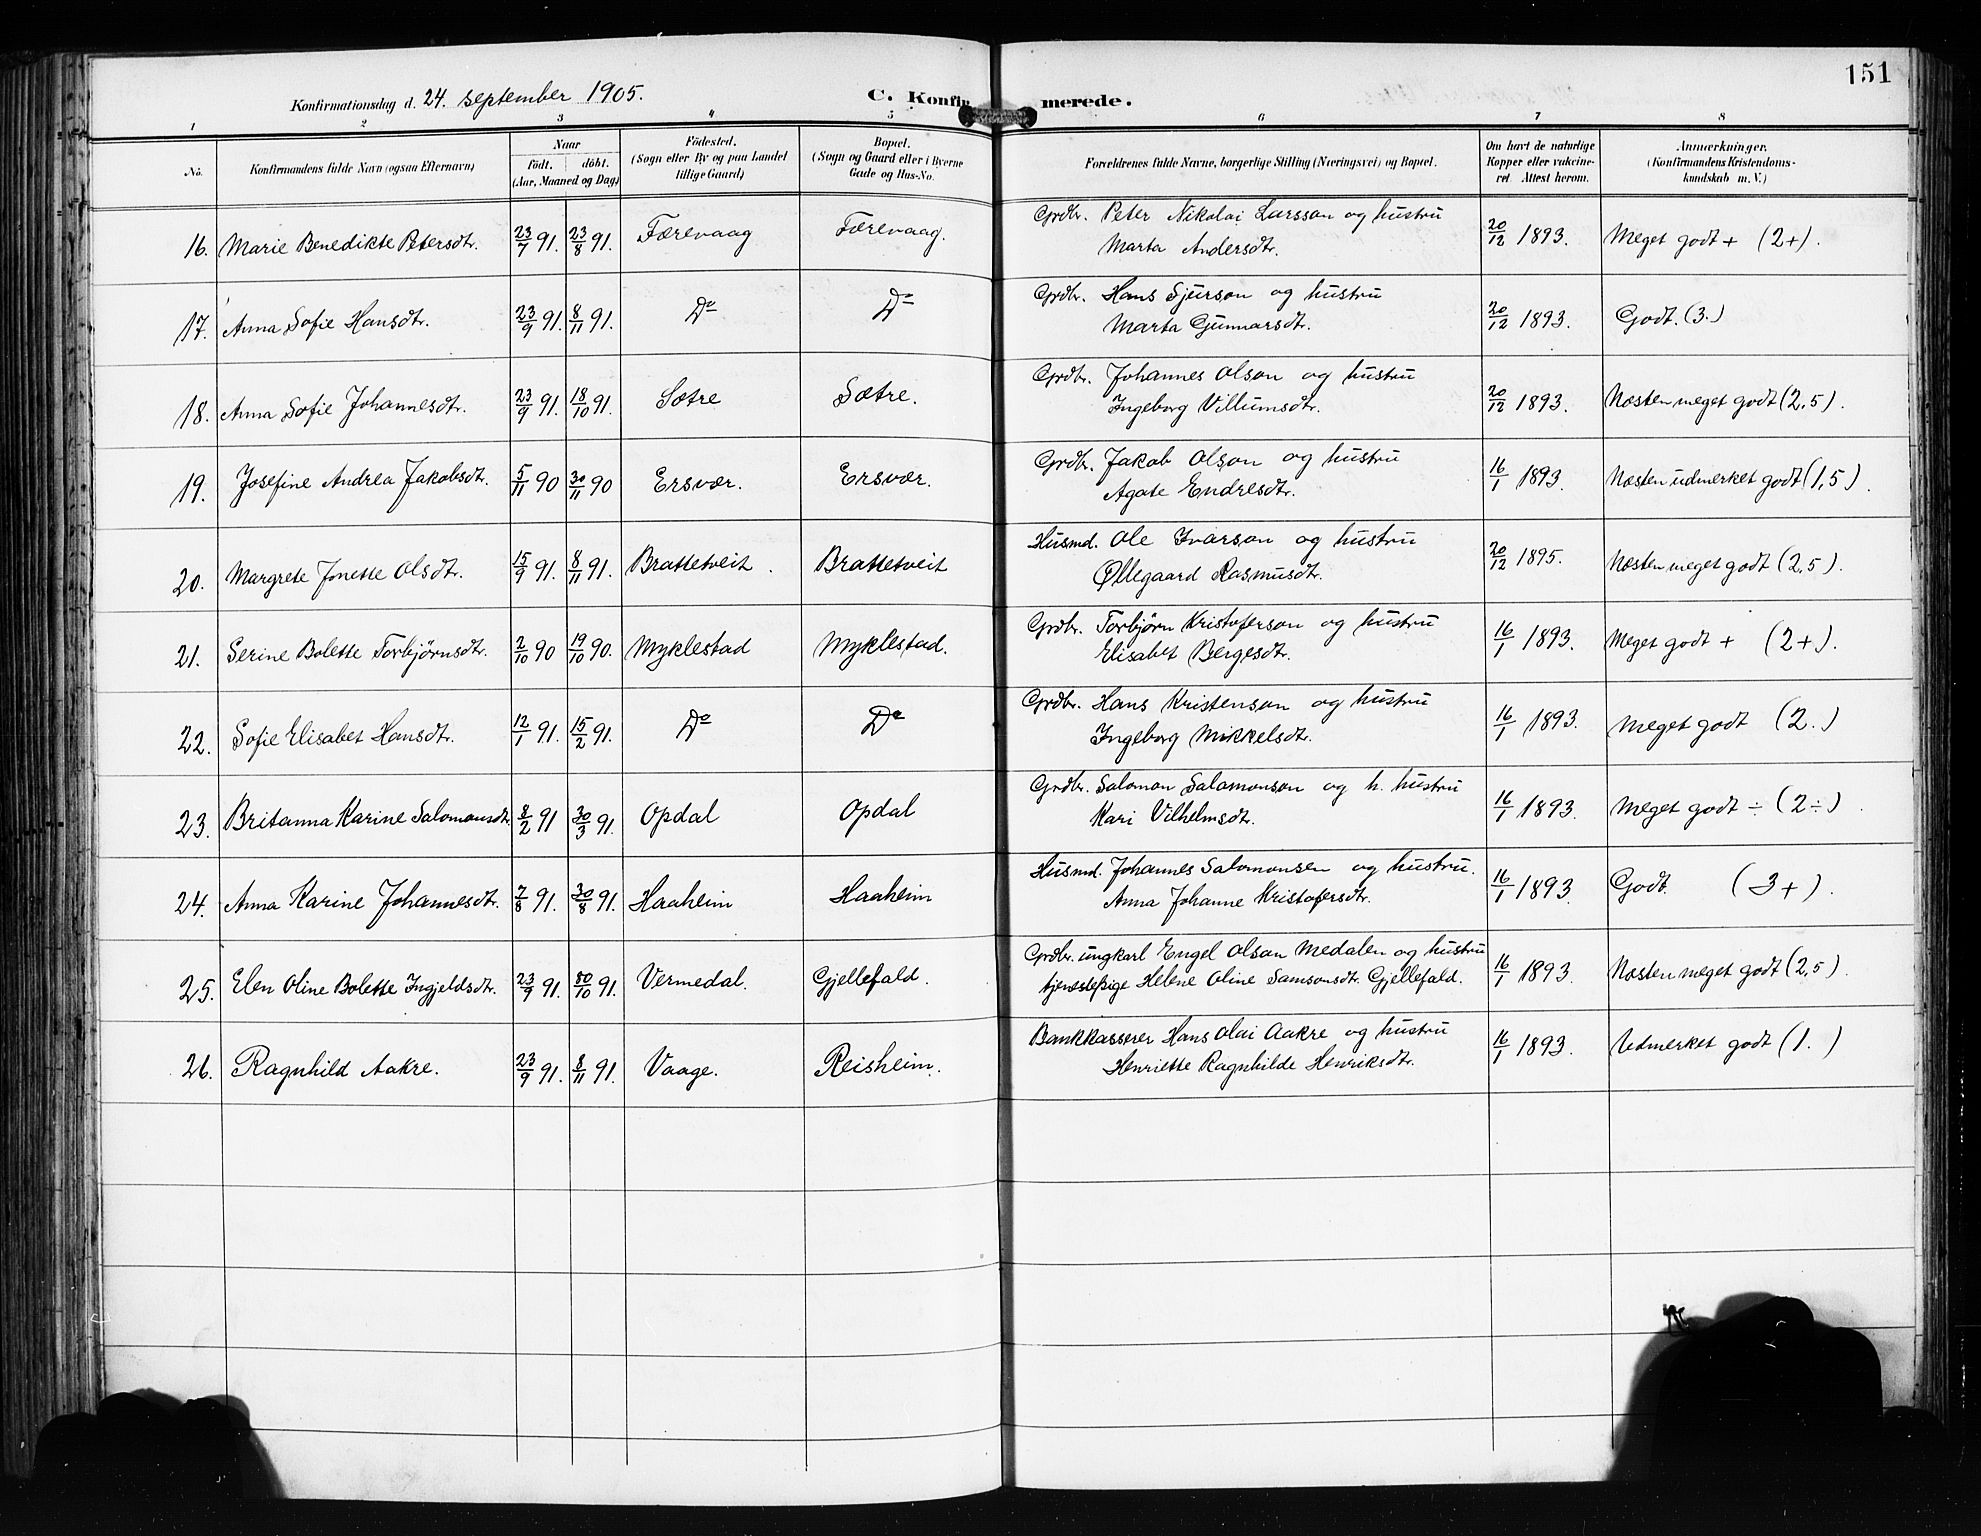 151
Konfirmationsdag d. 24. september 1905. C. Konfirmerede.
1 2 3 4 5 6 7 8
No. Konfirmandens fulde Navn (ogsaa Efternavn) Naar født. døbt. (Aar, Maaned og Dag) Födested. (Sogn eller By og paa Landet tillige Gaard) Bopæl. (Sogn og Gaard eller i Byerne Gade og Hus-No. Forældrenes fulde Navne, borgerlige Stilling (Næringsvei) og Bopæl. Om havt de naturlige Kopper eller vakcineret Attest herom. Anmærkninger. (Konfirmandens Kristendomskundskab m. V.)
16. Marie Benedikte Petersdtr. 23/7 91. 23/8 91. Færevaag Færevaag. Grdbr. Peter Nikolai Larsson og hustru 20/12 1893. Meget godt + (2+).
Marta Andersdtr.
17. Anna Sofie Hansdtr. 23/9 91. 8/11 91. Do Do Grdbr. Hans Sjurson og hustru 20/12 1893. Godt. (3.)
Marta Gunnarsdtr.
18. Anna Sofie Johannesdtr. 23/9 91. 18/10 91. Sætre Sætre. Grdbr. Johannes Olson og hustru 20/12 1893. Næsten meget godt (2,5).
Ingeborg Villumsdtr.
19. Josefine Andrea Jakobsdtr. 5/11 90 30/11 90 Ersvær. Ersvær. Grdbr. Jakob Olson og hustru 16/1 1893. Næsten udmerket godt (1,5).
Agate Endresdtr.
20. Margrete Jonette Olsdtr. 15/9 91. 8/11 91. Brattetveit. Brattetveit Husmd. Ole Ivarson og hustru 20/12 1895. Næsten meget godt (2,5).
Øllegaard Rasmusdtr.
21. Serine Bolette Torbjørnsdtr. 2/10 90 19/10 90. Myklestad Myklestad. Grdbr. Torbjørn Kristoferson og hustru 16/1 1893. Meget godt + (2+).
Elisabet Bergesdtr.
22. Sofie Elisabet Hansdtr. 12/1 91. 15/2 91. Do Do Grdbr. Hans Kristenson og hustru 16/1 1893. Meget godt (2.)
Ingeborg Mikkelsdtr.
23. Britanna Karine Salomonsdtr. 8/2 91 30/3 91. Opdal Opdal Grdbr. Salomon Salomonson og h. hustru 16/1 1893. Meget godt ÷ (2÷).
Kari Vilhelmsdtr.
24. Anna Karine Johannesdtr. 7/8 91. 30/8 91. Haaheim Haaheim Husmd. Johannes Salomonsen og hustru. 16/1 1893. Godt. (3+).
Anna Johanne Kristofersdtr.
25. Elen Oline Bolette Ingjeldsdtr. 23/9 91. /10 91. Vermedal. Gjellefald. Grdbr. ungkarl Engel Olson Medalen og hustru 16/1 1893. Næsten meget godt (2,5).
tjenestepige Helene Oline Samsonsdtr. Gjellefald.
26. Ragnhild Aakre. 23/9 91. 8/11 91. Vaage. Reisheim. Bankkasserer Hans Olai Aakre og hustru 16/1 1893. Udmerket godt (1.)
Henriette Ragnhilde Henriksdtr.